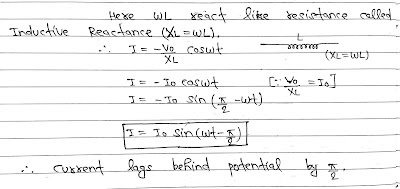 Here ωL react like resistance called
Inductive Reactance (XL = ωL).
∴ I = -V₀/XL cosωt
L
(XL = ωL)
I = -I₀ cosωt [∵ V₀/XL = I₀]
I = -I₀ sin(π/2 - ωt)
I = I₀ sin(ωt - π/2)
∴ Current lags behind potential by π/2.